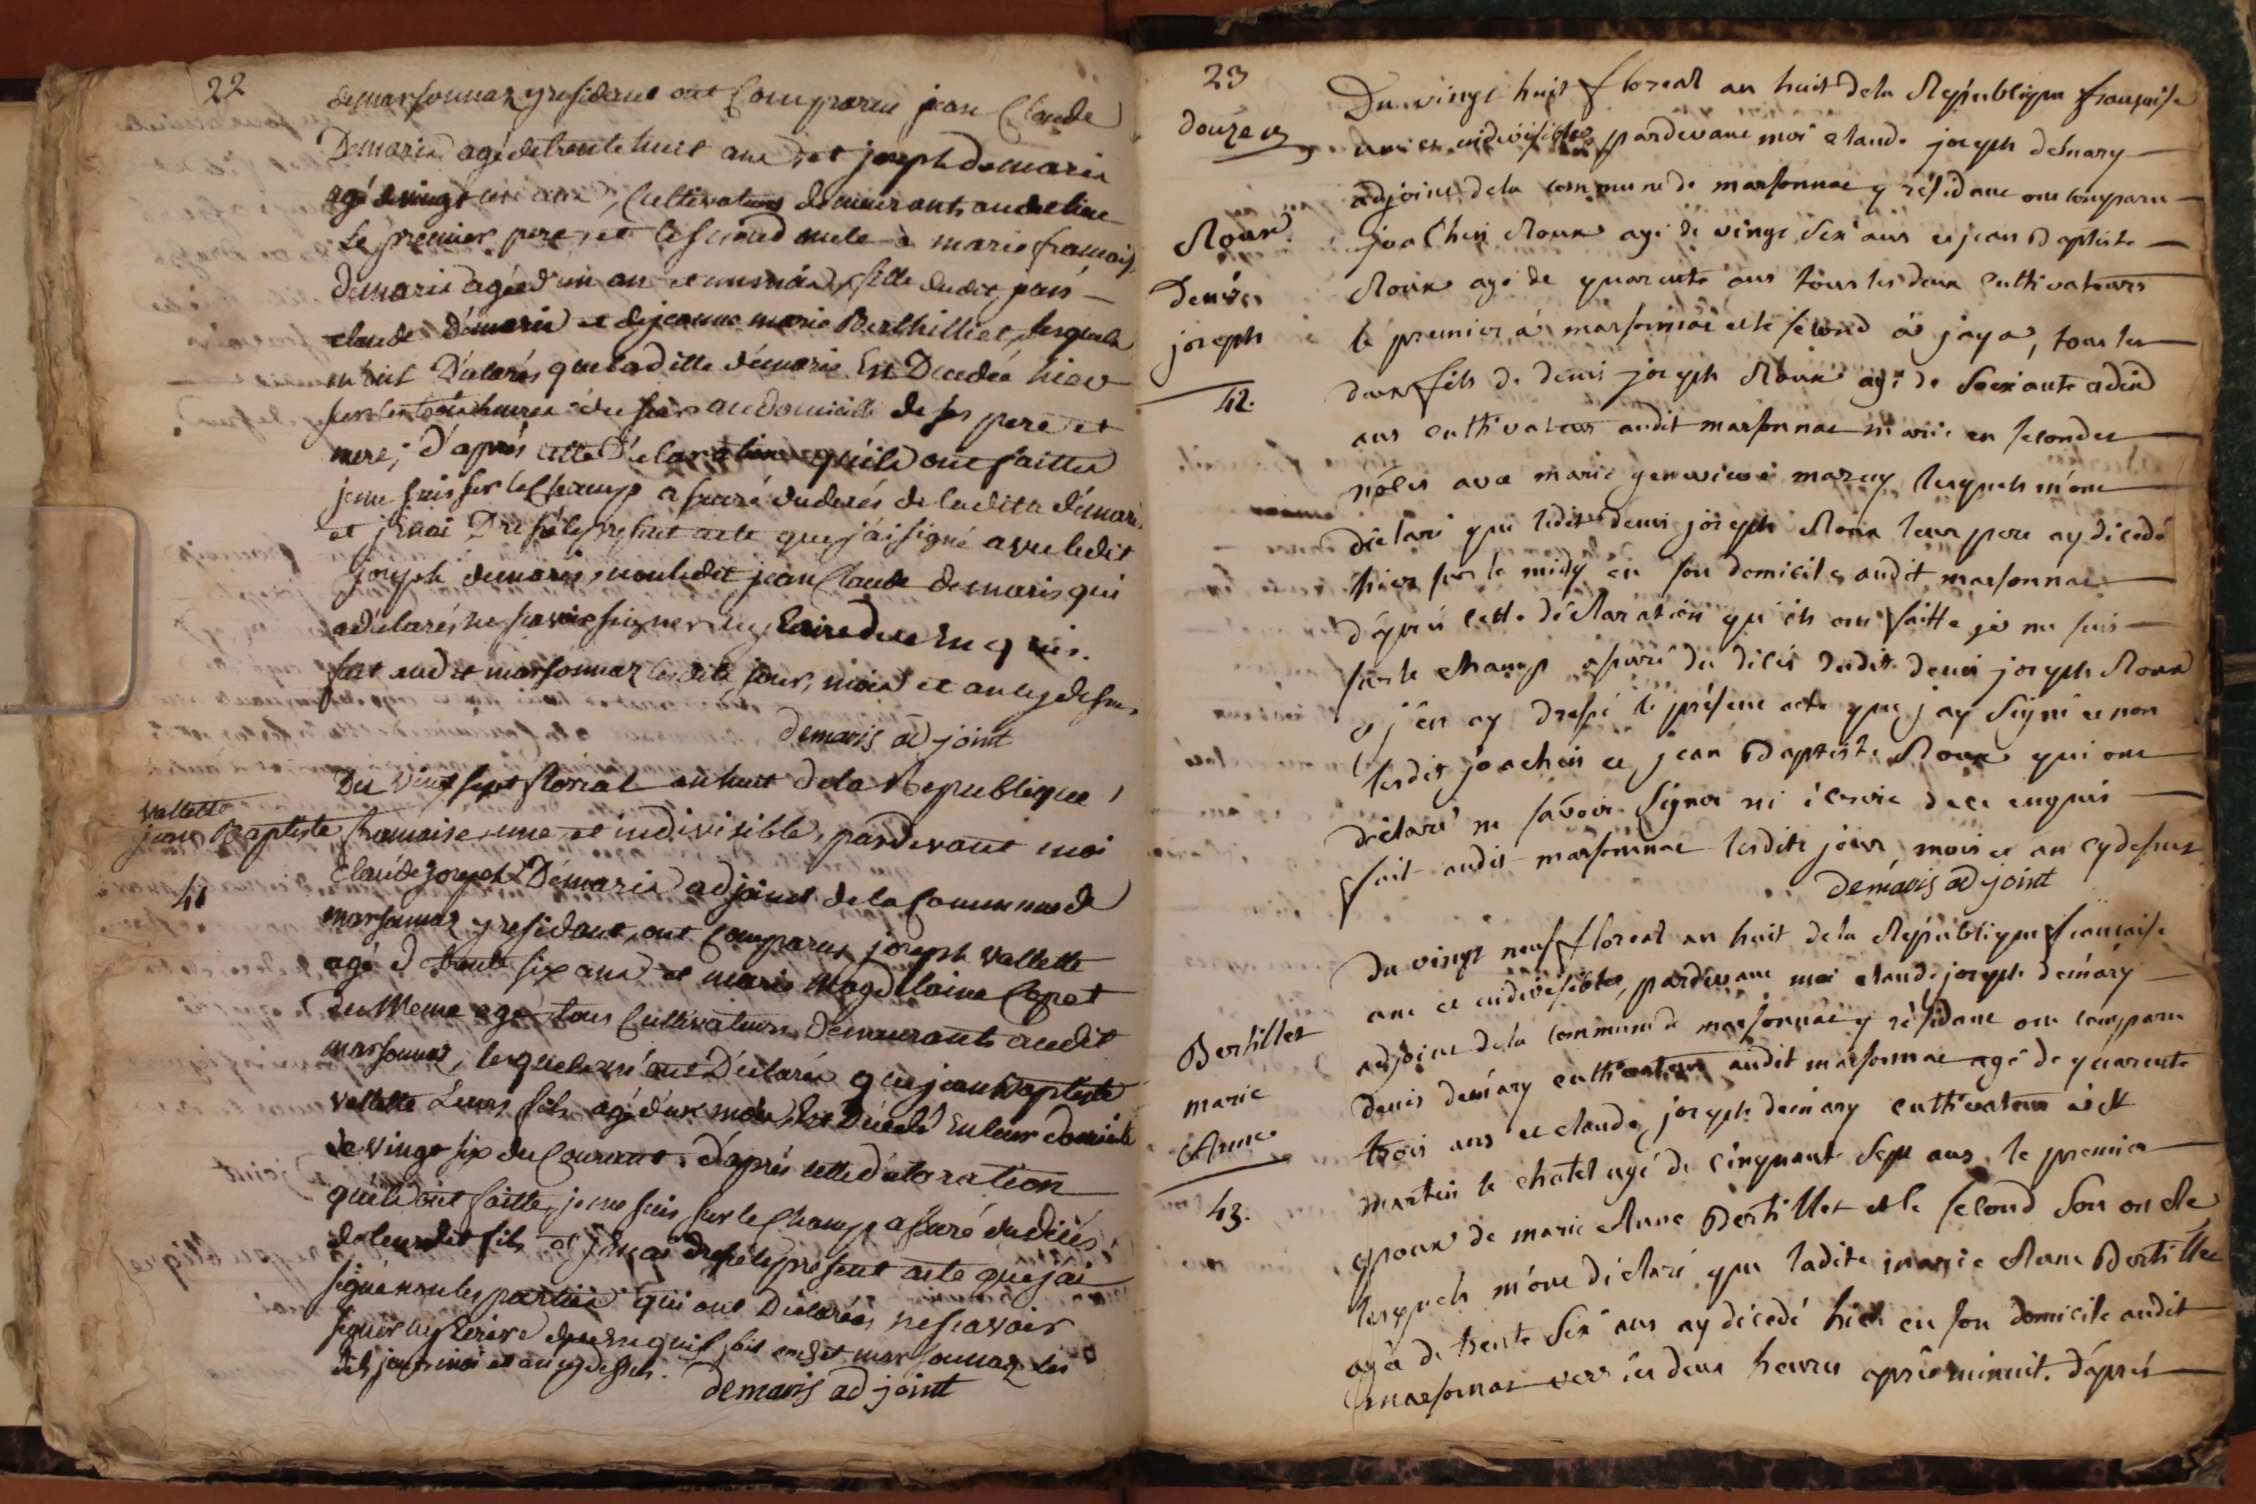 22
demarsonnaz y residant ont Comparus jean Claude
Demaris agé de trente huit ans et joseph demaris
agé de vingt un ans, Cultivateurs demeurants audit lieu
Le premier pere et le second oncle a marie francoise
demaris agée d'un an et un mois, fille dudit jean
claude demaris et de jeanne marie Berthilliet, lesquels
m'ont Déclarés que laditte demaris Est Decedée hier
sur les trois heures du soir au domicille de ses pere et
mere; d'après cette Déclaration qu'ils ont faittes
je me suis sur le Champ assuré du decés de ladite demaris
et j'en ai Dressé le present acte que j'ai signé avec ledit
joseph demaris, non ledit jean Claude demaris qui
a déclarés ne savoir signer ny Ecrire de ce Enquis.
fait audit marsonnaz lesdits jour, mois et an cy dessus,
demaris adjoint
Vallette
jean Baptiste
41
Du Vingt sept floréal an huit de la Republique
francaise une et indivisible, pardevant moi
Claude joseph Demaris adjoint de la Commune de
marsonnaz y residant, ont Comparus joseph Vallette
agé d trente six ans et marie Magdelaine Copet
du Meme age tous Cultivateurs Demeurants audit
marsonnaz, lesquels m'ont Déclarés que jean Baptiste
Vallette Leurs fils agé d'un mois Est Décédé En leur domicile
le vingt six du Courant. d'aprés cette déclaration
qu'ils ont faitte, je me suis sur le Champ assuré du décés
de leur dit fils et j'en ai dressé le present acte que j'ai
signé non les parties qui ont Déclarées ne scavoir
signer ny Ecrire de ce Enquis fait audit marsonnaz les
dits jour, mois et an cy dessus.
demaris adjoint
23
douze
Roux
Denis
joseph
42.
Du vingt huit floreal an huit de la République française
une et indivisible, pardevant moi claude joseph demary
adjoint de la commune de marsonnac y résidant ont comparu
joachin Roux agé de vingt six ans et jean Baptiste
Roux agé de quarente ans tous les deux cultivateurs
le premier à marsonnac et le second à jaya, tous les
deux fils de denis joseph Roux agé de soixante et dix
ans cultivateur audit marsonnac marié en secondes
nôces avec marie genevieve mazuy lesquels m'ont
déclaré que ledit denis joseph Roux leur pere ay décédé
hier sur le midy en son domicile audit marsonnac
d'après cette déclaration qu'ils ont faitte je me suis
sur le champ assuré du décés dudit denis joseph Roux
et j'en ay dressé le présent acte que j'ay signé et non
lesdits joachin et jean Baptiste Roux qui ont
déclaré ne sávoir signer ni écrire de ce enquis
fait audit marsonnac lesdits jour mois et an cy dessus
demaris adjoint
Bertillet
marie
Anne
43.
du vingt neuf floreal an huit de la République francaise
une et indivisible, pardevant moi claude joseph demary
adjoint de la commune de marsonnac y résidant ont comparu
denis demary cultivateur audit marsonnac agé de quarente
trois ans et claude joseph demary cultivateur à st
martin le chatel agé de cinquante sept ans le premier
epoux de marie Anne Bertillet et le second son oncle
lesquels m'ont déclaré que ladite marie Anne Bertillet
agée de trente six ans ay décédé hier en son domicile audit
marsonnac vers les deux heures après minuit. d'après